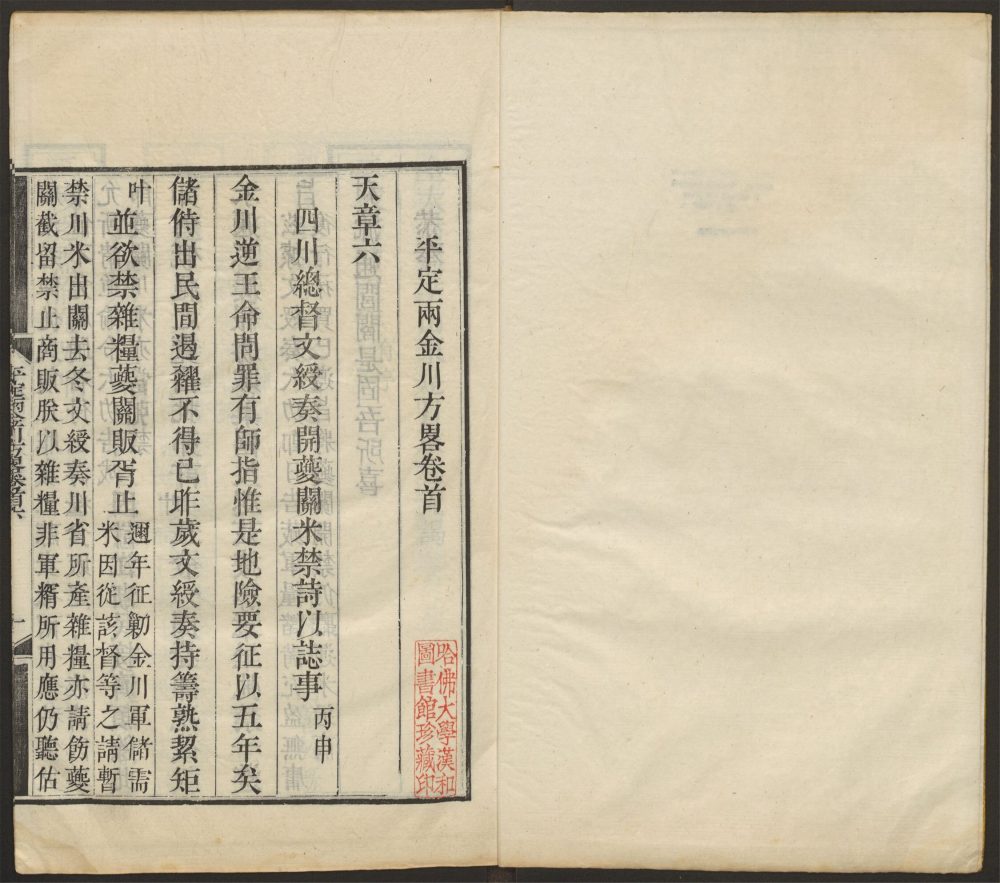 平定兩金川方畧卷首
天章六
四川總督文綬奏開夔關米禁詩以誌事 丙申
金川逆王命問罪有師指惟是地險要征以五年矣
儲偫出民間過糴不得已昨歲文綬奏持籌熟絜矩
叶 並欲禁雜糧夔關販胥止 邇年征勦金川軍儲需
米因從該督等之請暫
禁川米出關去冬文綬奏川省所產雜糧亦請飭夔
關截留禁止商販朕以雜糧非軍糈所用應仍聽估
平定兩金川方畧卷首六
一
哈佛大學漢和
圖書館珍藏印